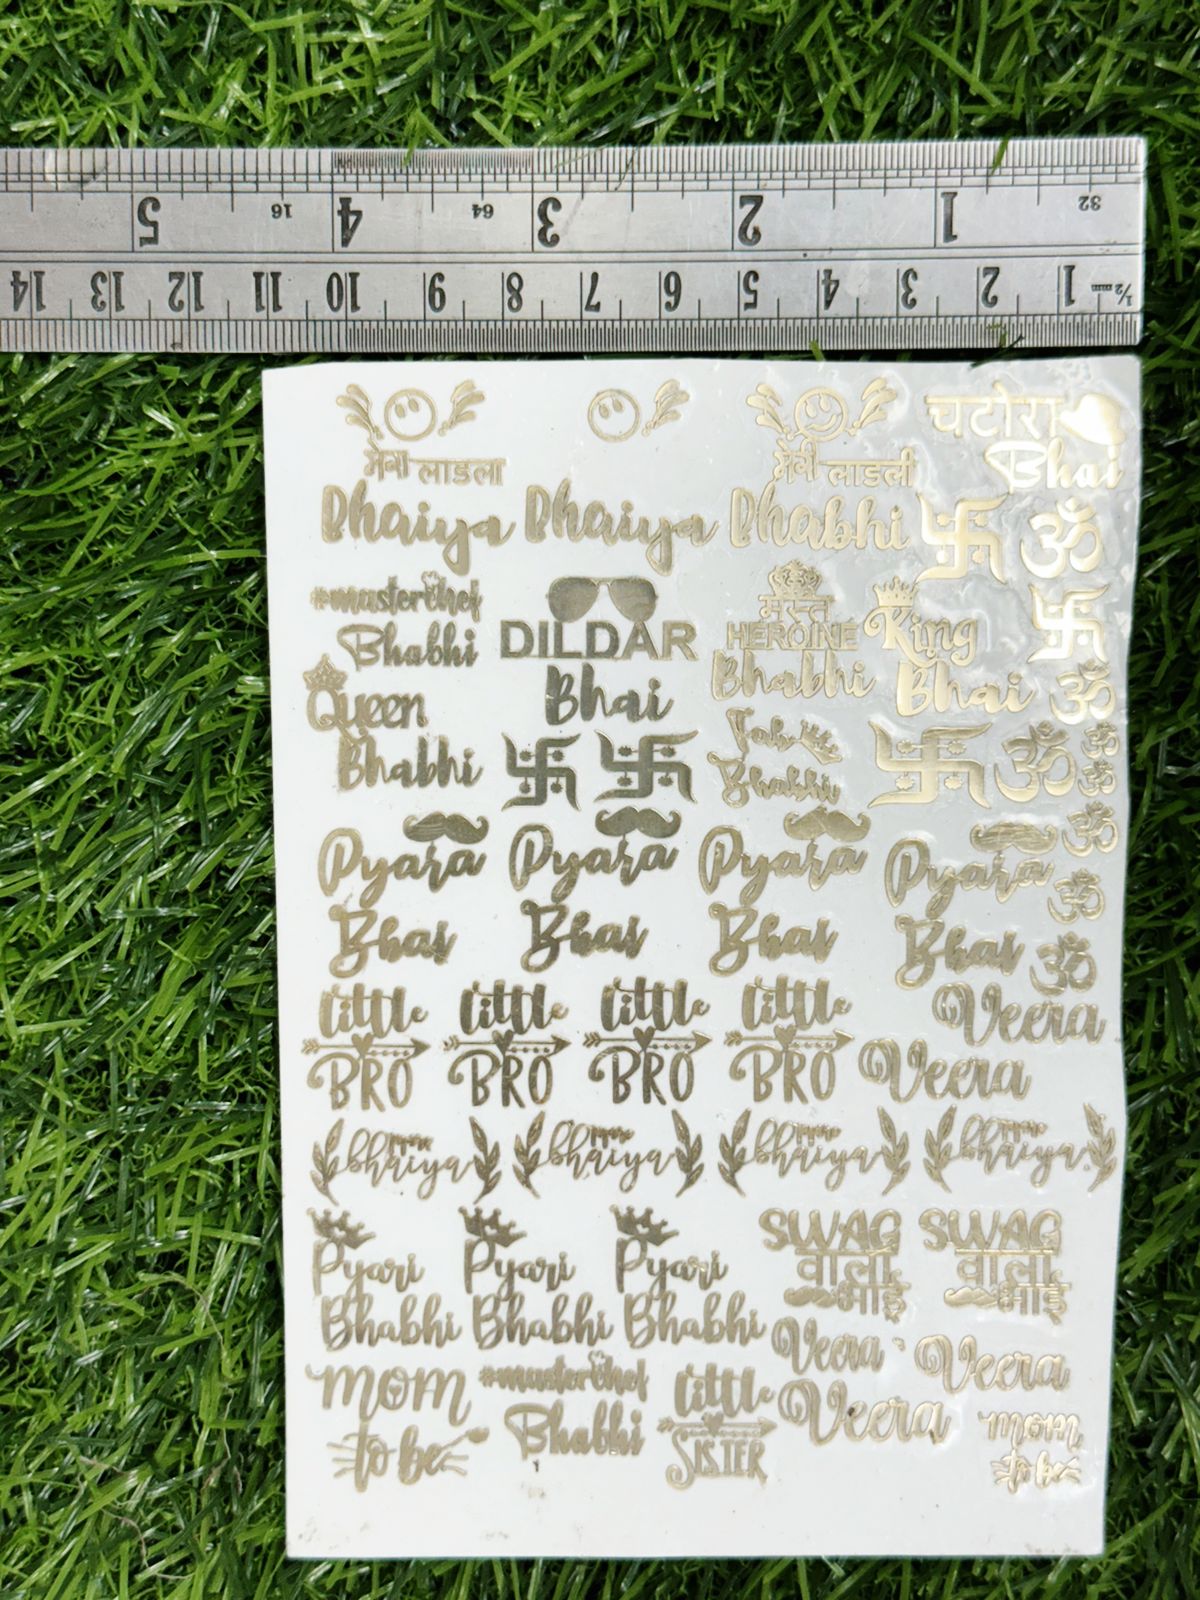 5 16 4 64 3 2 1 32
14 13 12 11 10 9 8 7 6 5 4 3 2 1 ½mm
मेरा लाडला
Bhaiya
Bhaiya
मेरी लाडली
Bhabhi
चटोरा
Bhai
卐 ॐ
#masterchef
Bhabhi
DILDAR
Bhai
मस्त
HEROINE
Bhabhi
King
Bhai
卐
ॐ
Queen
Bhabhi
卐 卐
Bhabhi
卐 ॐ ॐ
ॐ
Pyara
Bhai
Pyara
Bhai
Pyara
Bhai
Pyara
Bhai
ॐ
ॐ
ॐ
little
BRO
little
BRO
little
BRO
little
BRO
Veera
Veera
bhaiya
bhaiya
bhaiya
bhaiya
Pyari
Bhabhi
Pyari
Bhabhi
Pyari
Bhabhi
SWAG
वाला
भाई
SWAG
वाला
भाई
Veera
Veera
Veera
MOM
to be
#masterchef
Bhabhi
little
SISTER
MOM
to be